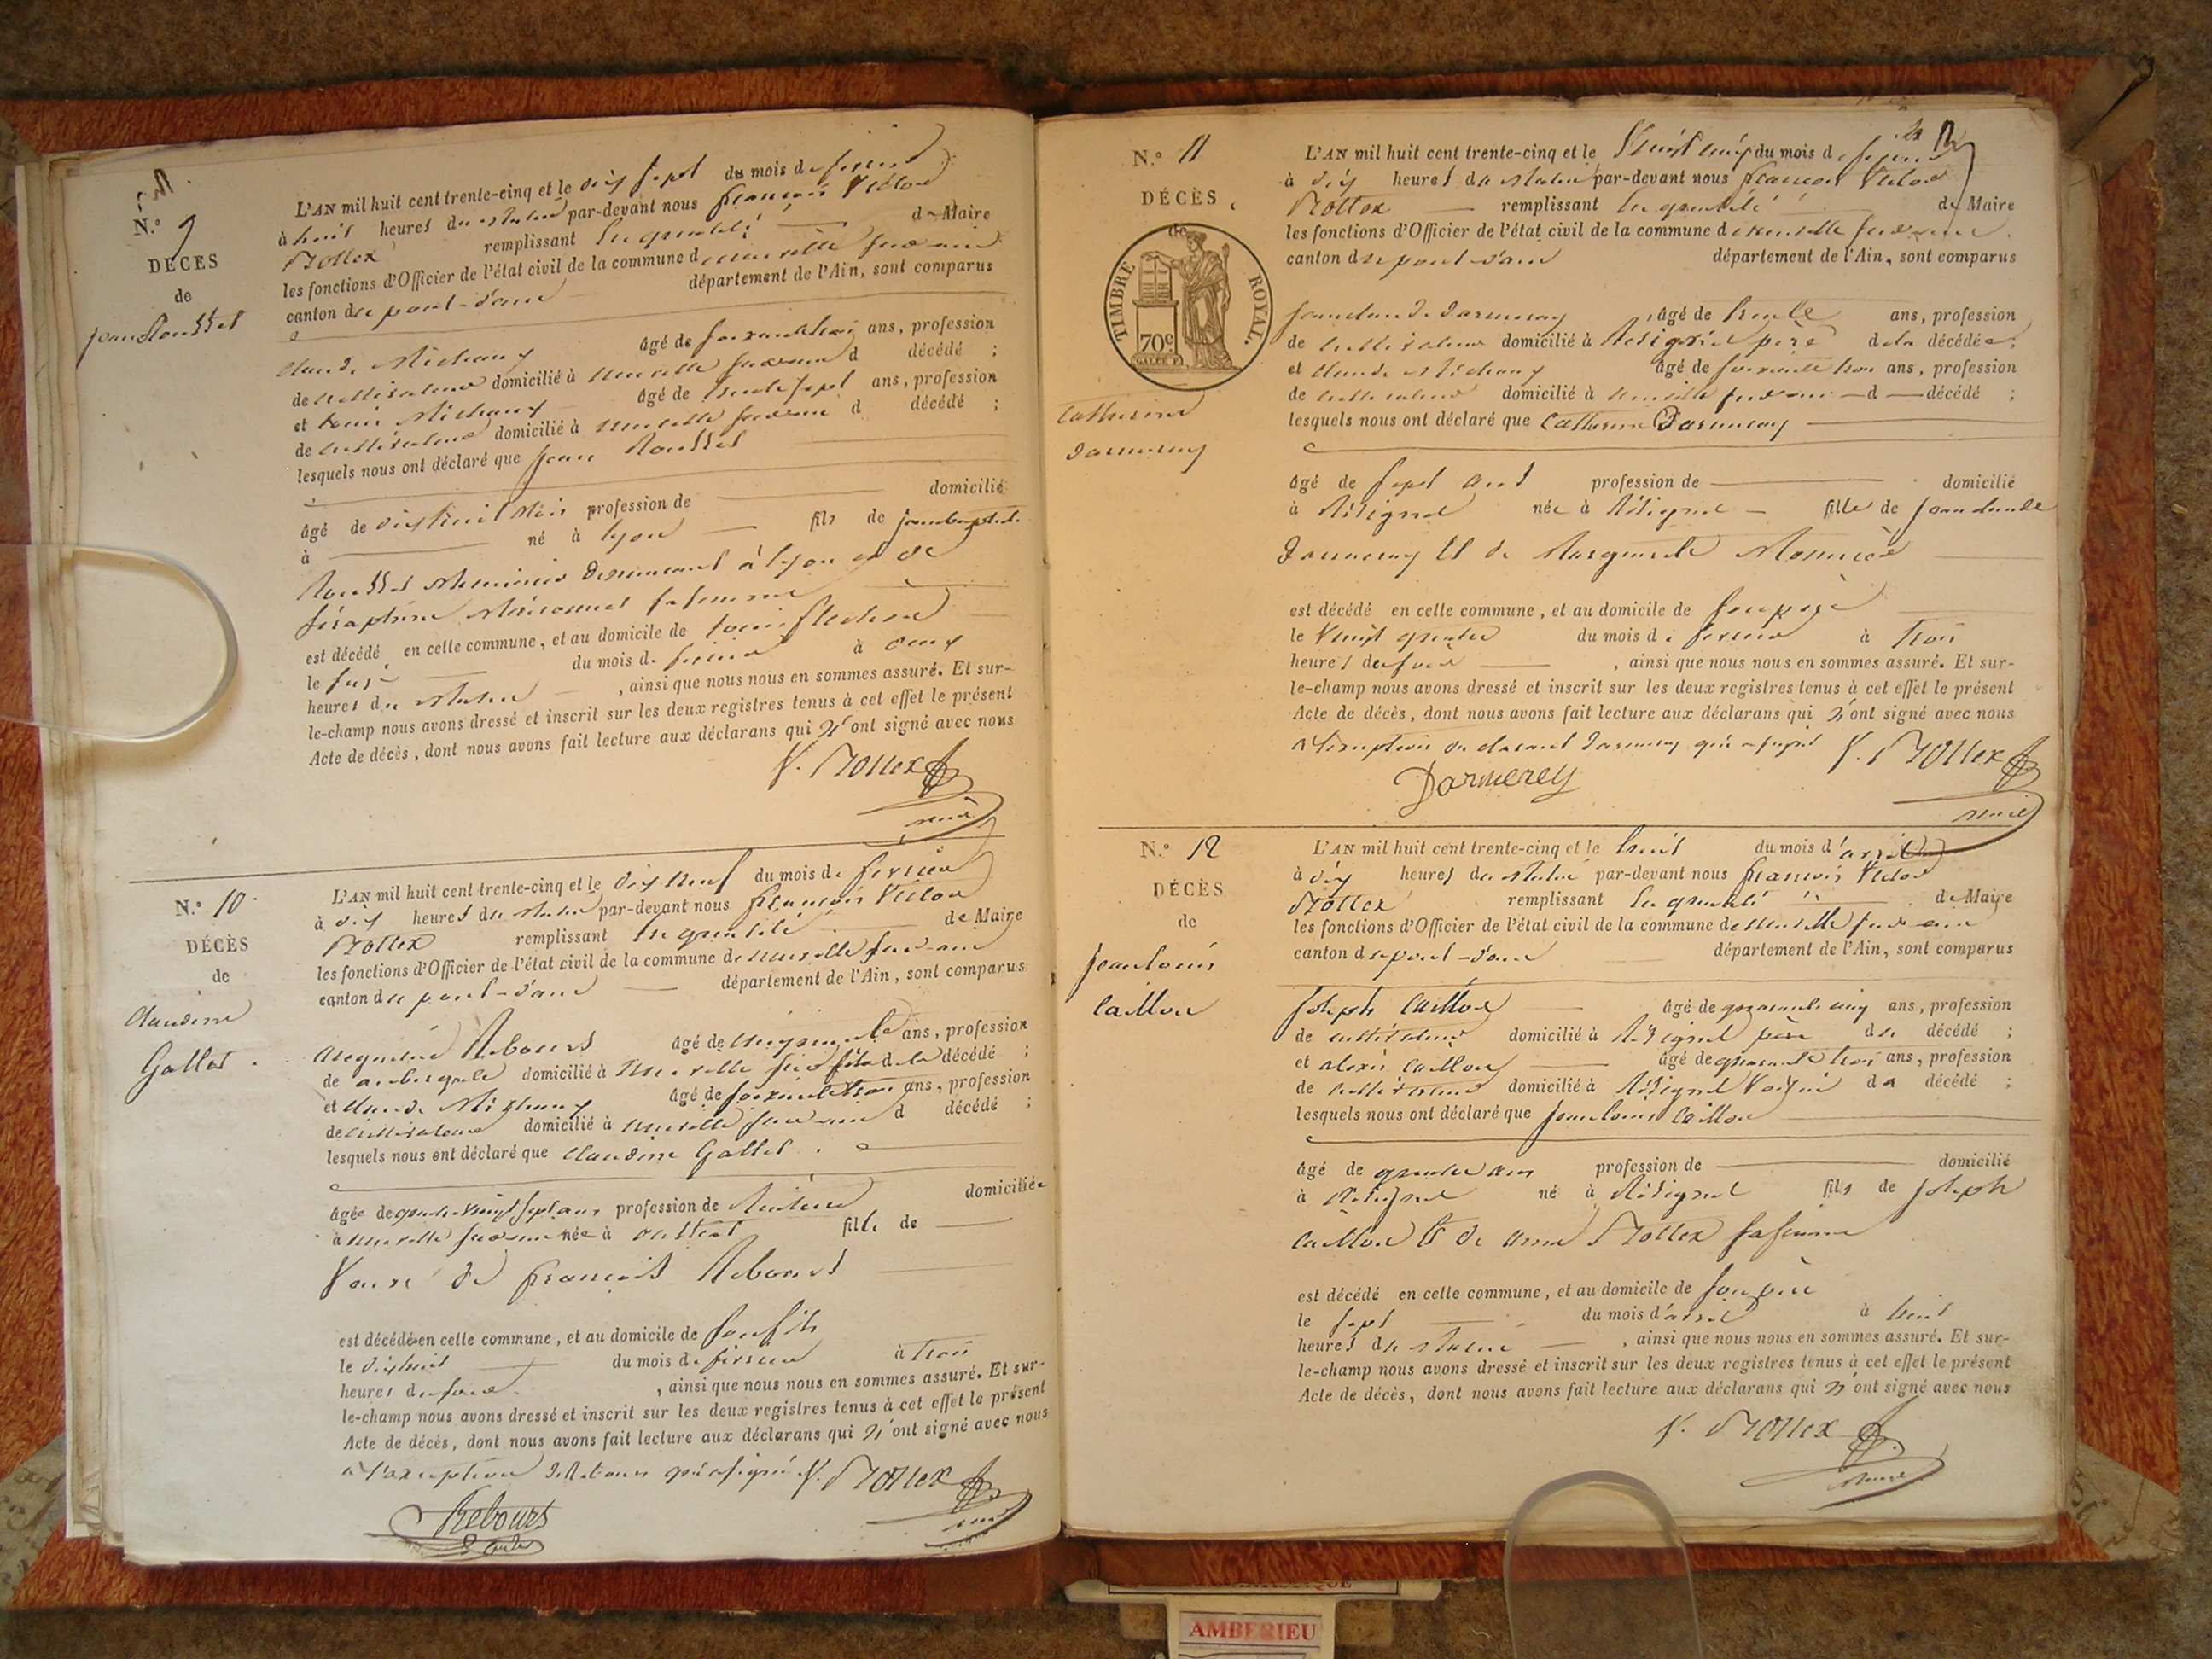 N.° 9
DÉCÈS
de
Jean Roussel
L'AN mil huit cent trente-cinq et le dix sept du mois de fevrier
à huit heures du matin par-devant nous françois Victor
Bottex remplissant en qualité de Maire
les fonctions d'Officier de l'état civil de la commune de neuville sur ain
canton de pont-d'ain département de l'Ain, sont comparus
Claude Michaux âgé de soixante trois ans, profession
de cultivateur domicilié à neuville sur ain d décédé ;
et Louis Michaux âgé de trente sept ans, profession
de cultivateur domicilié à neuville sur ain d décédé ;
lesquels nous ont déclaré que Jean Roussel
âgé de dix huit mois profession de domicilié
à né à lyon fils de jean baptiste
Roussel demeurant à lyon et de
séraphine sa femme
est décédé en cette commune, et au domicile de Louis
le du mois de fevrier à onze
heures du matin , ainsi que nous nous en sommes assuré. Et sur-
le-champ nous avons dressé et inscrit sur les deux registres tenus à cet effet le présent
Acte de décès, dont nous avons fait lecture aux déclarans qui n'ont signé avec nous
V. Bottex
maire
N.° 10
DÉCÈS
de
Claudine
Gallet
L'AN mil huit cent trente-cinq et le dix neuf du mois de fevrier
à dix heures du matin par-devant nous françois Victor
Bottex remplissant en qualité de Maire
les fonctions d'Officier de l'état civil de la commune de neuville sur ain
canton de pont-d'ain département de l'Ain, sont comparus
Rebours âgé de cinquante ans, profession
de aubergiste domicilié à neuville sur fils de la décédé ;
et Claude Michaux âgé de soixante trois ans, profession
de cultivateur domicilié à neuville sur ain d décédé ;
lesquels nous ont déclaré que Claudine Gallet
âgée de quatre vingt sept ans profession de rentiere domiciliée
à neuville sur ain née à fille de
Veuve de françois Rebours
est décédée en cette commune, et au domicile de son fils
le dix huit du mois de fevrier à trois
heures du soir , ainsi que nous nous en sommes assuré. Et sur-
le-champ nous avons dressé et inscrit sur les deux registres tenus à cet effet le présent
Acte de décès, dont nous avons fait lecture aux déclarans qui n'ont signé avec nous
à l'exception de Rebours qui a signé V. Bottex
maire
Rebours
N.° 11
DÉCÈS
de
TIMBRE ROYAL.
70c
Catherine
Darmerey
L'AN mil huit cent trente-cinq et le Vingt cinq du mois de fevrier
à dix heures du matin par-devant nous françois Victor
Bottex remplissant en qualité de Maire
les fonctions d'Officier de l'état civil de la commune de neuville sur ain
canton de pont-d'ain département de l'Ain, sont comparus
Jean claude Darmerey âgé de trente ans, profession
de cultivateur domicilié à Résignel père de la décédée ;
et Claude Michaux âgé de soixante trois ans, profession
de cultivateur domicilié à neuville sur ain d décédé ;
lesquels nous ont déclaré que Catherine Darmerey
âgé de sept ans profession de domicilié
à Résignel née à Résignel fille de Jean claude
Darmerey et de Marguerite
est décédé en cette commune, et au domicile de son père
le Vingt quatre du mois de fevrier à trois
heures du soir , ainsi que nous nous en sommes assuré. Et sur-
le-champ nous avons dressé et inscrit sur les deux registres tenus à cet effet le présent
Acte de décès, dont nous avons fait lecture aux déclarans qui n'ont signé avec nous
à l'exception du Darmerey qui a signé V. Bottex
Darmerey
maire
N.° 12
DÉCÈS
de
Jean louis
Caillou
L'AN mil huit cent trente-cinq et le huit du mois d'avril
à dix heures du matin par-devant nous françois Victor
Bottex remplissant en qualité de Maire
les fonctions d'Officier de l'état civil de la commune de neuville sur ain
canton de pont-d'ain département de l'Ain, sont comparus
Joseph Caillou âgé de quarante cinq ans, profession
de cultivateur domicilié à Résignel père du décédé ;
et alexis Caillou âgé de quarante trois ans, profession
de cultivateur domicilié à Résignel Voisin du décédé ;
lesquels nous ont déclaré que Jean louis Caillou
âgé de quatre ans profession de domicilié
à Résignel né à Résignel fils de Joseph
Caillou et de anne Bottex sa femme
est décédé en cette commune, et au domicile de son père
le sept du mois d'avril à huit
heures du matin , ainsi que nous nous en sommes assuré. Et sur-
le-champ nous avons dressé et inscrit sur les deux registres tenus à cet effet le présent
Acte de décès, dont nous avons fait lecture aux déclarans qui n'ont signé avec nous
V. Bottex
maire
AMBERIEU